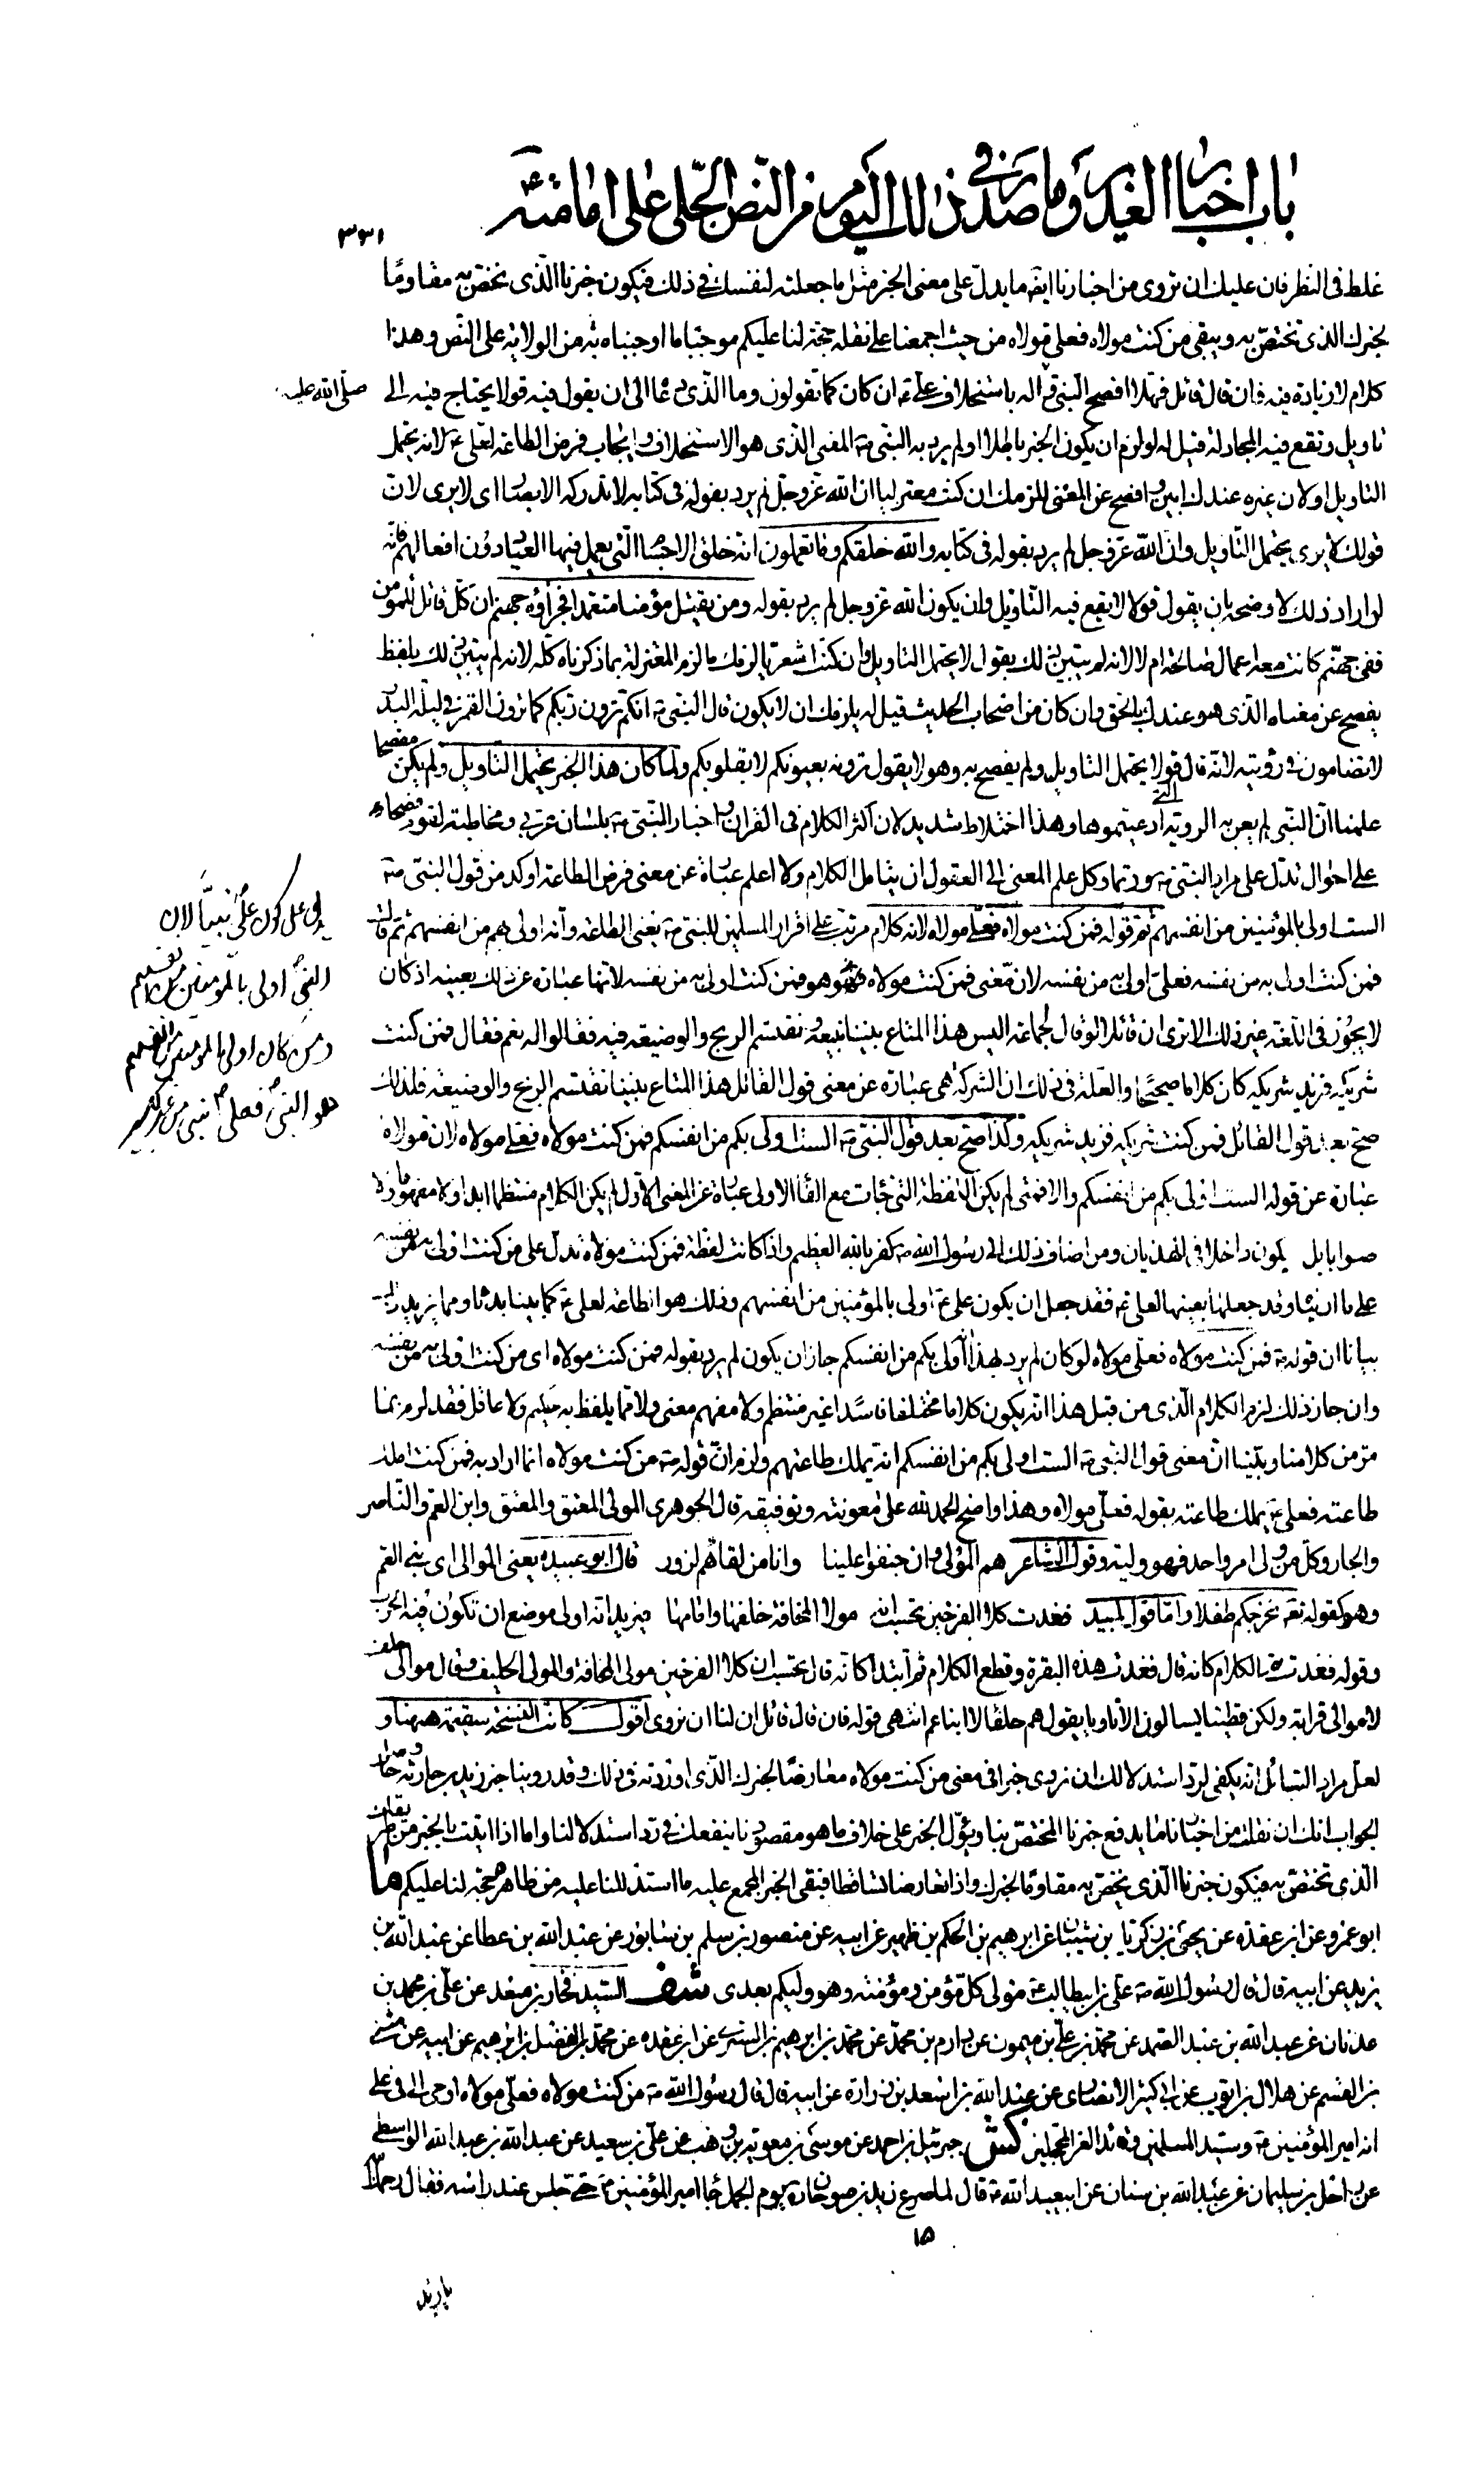 باب اخبار الغدير وما صدر في ذلك اليوم من النص الجلي على امامته ع
٣٣١
غلط في النظر فان عليك ان تروى من اخبارنا ايضا ما يدل على معنى الخبر مثل ما جعلته لنفسك في ذلك فيكون خبرنا الذى نختص به مقاوما
لخبرك الذى تختص به ويبقى من كنت مولاه فعلي مولاه من حيث اجمعنا على نقله حجة لنا عليكم موجبا ما اوجبناه به من الولاية على النص وهذا
كلام لا زيادة فيه فان قال قائل فهلا افصح النبي باستخلاف علي ع ان كان كما تقولون وما الذى دعا الى ان يقول فيه قولا يحتاج فيه الى
صلى الله عليه
تاويل وتقع فيه المجادلة قيل له لو لزم ان يكون الخبر باطلا او لم يرد به النبي ص المعنى الذى هو الاستخلاف وايجاب فرض الطاعة لعلي ع لانه يحتمل
التاويل او لان غيره عندك ابين وافصح عن المعنى للزمك ان كنت معتزليا ان الله عز وجل لم يرد بقوله في كتابه لا تدركه الابصار اى لا يرى لان
قولك لا يرى يحتمل التاويل وان الله عز وجل لم يرد بقوله في كتابه والله خلقكم وما تعملون انه خلق الاجسام التي يعمل فيها العباد دون افعالهم فانه
لو اراد ذلك لاوضحه بان يقول قولا لا يقع فيه التاويل وان يكون الله عز وجل لم يرد بقوله ومن يقتل مؤمنا متعمدا فجزاؤه جهنم ان كل قاتل للمؤمن
ففي جهنم كانت معه اعمال صالحة ام لا لانه لم يتبين ذلك بقول لا يحتمل التاويل وان كنت اشعريا لزمك ما لزم المعتزلة بما ذكرناه كله لانه لم يتبين ذلك بلفظ
يفصح عن معناه الذى هو عندك بالحق وان كان من اصحاب الحديث قيل له يلزمك ان لا يكون قال النبي ص انكم ترون ربكم كما ترون القمر في ليلة البدر
لا تضامون في رؤيته لانه قال قولا يحتمل التاويل ولم يفصح به وهو لا يقول ترونه بعيونكم لا بقلوبكم ولما كان هذا الخبر يحتمل التاويل ولم يكن مفصحا
علمنا ان النبي لم يعن به الروية التي ادعيتموها وهذا اختلاط شديد لان اكثر الكلام في القران واخبار النبي ص بلسان عربي ومخاطبة لقوم فصحاء
على احوال تدل على مراد النبي ص وربما وكل علم المعنى الى العقول ان يتامل الكلام ولا اعلم عبارة عن معنى فرض الطاعة اوكد من قول النبي ص
الست اولى بالمؤمنين من انفسهم ثم قوله فمن كنت مولاه فعلي مولاه لانه كلام مرتب على اقرار المسلمين للنبي ص يعنى الطاعة وانه اولى بهم من انفسهم ثم قال
فمن كنت اولى به من نفسه فعلي اولى به من نفسه لان معنى فمن كنت مولاه هو فمن كنت اولى به من نفسه لانها عبارة عن ذلك بعينه اذ كان
لا يجوز في اللغة غير ذلك الا ترى ان قائلا لو قال لجماعة اليس هذا المتاع بيننا نبيعه ونقتسم الربح والوضيعة فيه فقالوا له نعم فقال فمن كنت
شريكه فزيد شريكه كان كلاما صحيحا والعلة في ذلك ان الشركة هي عبارة عن معنى قول القائل هذا المتاع بيننا نقتسم الربح والوضيعة فلذلك
صح بعد قول القائل فمن كنت شريكه فزيد شريكه وكذا صح بعد قول النبي ص الست اولى بكم من انفسكم فمن كنت مولاه فعلي مولاه لان مولاه
عبارة عن قوله الست اولى بكم من انفسكم والا فمتى لم يكن اللفظة التي جاءت مع الفاء الاولى عبارة عن المعنى الاول لم يكن الكلام منتظما ابدا ولا مفهوما ولا
صوابا بل يكون داخلا في الهذيان ومن اضاف ذلك الى رسول الله ص كفر بالله العظيم واذا كانت لفظة فمن كنت مولاه تدل على من كنت اولى به من نفسه
على ما ارينا وقد جعلها بعينها لعلي ع فقد جعل ان يكون علي ع اولى بالمؤمنين من انفسهم وذلك هو الطاعة لعلي ع كما بينا بدئا ومما يزيد ذلك
بيانا ان قوله ص فمن كنت مولاه فعلي مولاه لو كان لم يرد بهذا انه اولى بكم من انفسكم جاز ان يكون لم يرد بقوله فمن كنت مولاه اى من كنت اولى به من نفسه
وان جاز ذلك لزم الكلام الذى من قبل هذا انه يكون كلاما مختلفا فاسدا غير منتظم ولا مفهم معنى ولا مما يلفظ به حكيم ولا عاقل فقد لزم بما
مر من كلامنا وبينا ان معنى قول النبي ص الست اولى بكم من انفسكم انه يملك طاعتهم ولزم ان قوله ص من كنت مولاه انما اراد به فمن كنت املك
طاعته فعلي ع يملك طاعته بقوله فعلي مولاه وهذا واضح الحمد لله على معونته وتوفيقه قال الجوهرى المولى المعتق والمعتق وابن العم والناصر
والجار وكل من ولى امر واحد فهو وليه وقول الشاعر هم المولى وان جنفوا علينا وانا من لقائهم لزور قال ابو عبيدة يعنى الموالى اى بنى العم
وهو كقوله تعم نخرجكم طفلا واما قول لبيد فغدت كلا الفرجين تحسب انه مولى المخافة خلفها وامامها فيريد انه اولى موضع ان تكون فيه الحرب
وقوله فغدت تم الكلام كانه قال فغدت هذه البقرة وقطع الكلام ثم ابتدا كانه قال تحسب ان كلا الفرجين مولى المخافة والمولى الحليف وقال موالى حلف
لا موالى قرابة ولكن قطينا يسالون الاتاويا يقول هم حلفاء لا ابناء عم انتهى قوله فان قال قائل ان لنا ان نروى اقول كانت النسخة سقيمة ههنا و
لعل مراد السائل انه يكفى لرد استدلالك ان نروى خبرا في معنى من كنت مولاه معارضا لخبرك الذى اوردته في ذلك وقد روينا خبر زيد بن حارثة وحاصل
الجواب انك ان نقلت من اخبارنا ما يدفع خبرنا المختص بنا ويؤول الخبر على خلاف ما هو مقصودنا ينفعك في رد استدلالنا واما اذا اتيت بالخبر من طريقك
الذى تختص به فيكون خبرنا الذى نختص به مقاوما لخبرك واذا تعارضا تساقطا فبقى الخبر المجمع عليه ما استدللنا عليه من ظاهره حجة لنا عليكم ما
ابو عمرو عن ابن عقدة عن يحيى بن زكريا بن شيبان عن ابرهيم بن الحكم بن ظهير عن ابيه عن منصور بن سلم بن سابور عن عبد الله بن عطا عن عبد الله بن
يزيد عن ابيه قال قال رسول الله ص علي بن ابيطالب ع مولى كل مؤمن ومؤمنة وهو وليكم بعدى شف السيد فخار بن معد عن علي بن محمد بن
عدنان عن عبد الله بن عبد الصمد عن محمد بن علي بن ميمون عن دارم بن محمد عن محمد بن ابرهيم بن السرى عن ابن عقدة عن محمد بن الفضل بن ابرهيم عن ابيه عن مثنى
بن القسم عن هلال بن ايوب عن ابى كثير الانصارى عن عبد الله بن اسعد بن زرارة عن ابيه قال قال رسول الله ص من كنت مولاه فعلي مولاه اوحى الى في علي
انه امير المؤمنين ص وسيد المسلمين وقائد الغر المحجلين كش جبرئيل بن احمد عن موسى بن معوية بن وهب عن علي بن سعيد عن عبد الله بن عبد الله الواسطى
عن واصل بن سليمان عن عبد الله بن سنان عن ابيعبد الله ع قال لما صرع زيد بن صوحان ره يوم الجمل جاء امير المؤمنين ع حتى جلس عند راسه فقال رحمك الله
١٥
يا زيد
على كون علي نبيا لان
النبي اولى بالمؤمنين من انفسهم
ومن كان اولى بالمؤمنين من انفسهم
هو النبي فعلي نبي من غير